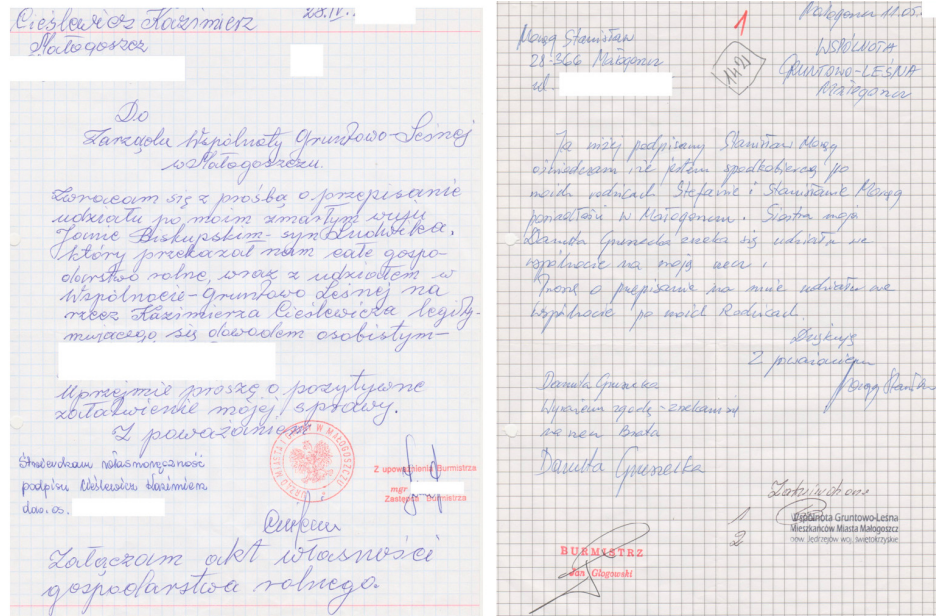 Cieślewicz Kazimierz
28.IV.
Małogoszcz
Do
Zarządu Wspólnoty Gruntowo-Leśnej
w Małogoszczu.
Zwracam się z prośbą o przepisanie
udziału po moim zmarłym wuju
Janie Biskupskim - syn Ludwika,
który przekazał nam całe gospo-
darstwo rolne, wraz z udziałem w
Wspólnocie-Gruntowo Leśnej na
rzecz Kazimierza Cieślewicza legity-
mującego się dowodem osobistym-
Uprzejmie proszę o pozytywne
załatwienie mojej sprawy.
Z poważaniem
Stwierdzam własnoręczność
podpisu Cieślewicz Kazimierz
dow. os.
Z upoważnienia Burmistrza
mgr
Zastępca Burmistrza
Załączam akt własności
gospodarstwa rolnego.
1
Małogoszcz 11.05.
Moząg Stanisław
28-366 Małogoszcz
ul.
1421
WSPÓLNOTA
GRUNTOWO-LEŚNA
Małogoszcz
Ja niżej podpisany Stanisław Moząg
oświadczam, że jestem spadkobiercą po
moich rodzicach Stefanie i Stanisławie Moząg
w Małogoszczu. Siostra moja
Danuta Gruszecka zrzeka się udziału we
wspólnocie na moją rzecz.
Proszę o przepisanie na mnie udziału we
Wspólnocie po moich Rodzicach.
Dziękuję
Z poważaniem
Moząg Stanisław
Danuta Gruszecka
Wyrażam zgodę -
na rzecz Brata
Danuta Gruszecka
Załatwiono
1
2
Wspólnota Gruntowo-Leśna
Mieszkańców Miasta Małogoszcz
pow. Jędrzejów woj. świętokrzyskie
BURMISTRZ
Jan Głogowski